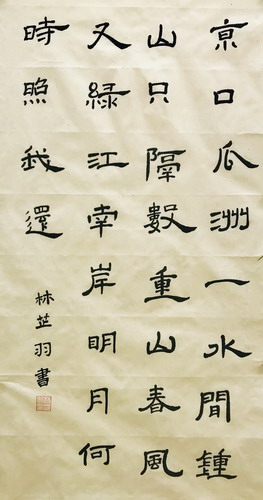 京口瓜洲一水間鍾
山只隔數重山春風
又緑江南岸明月何
時照我還
林芷羽書